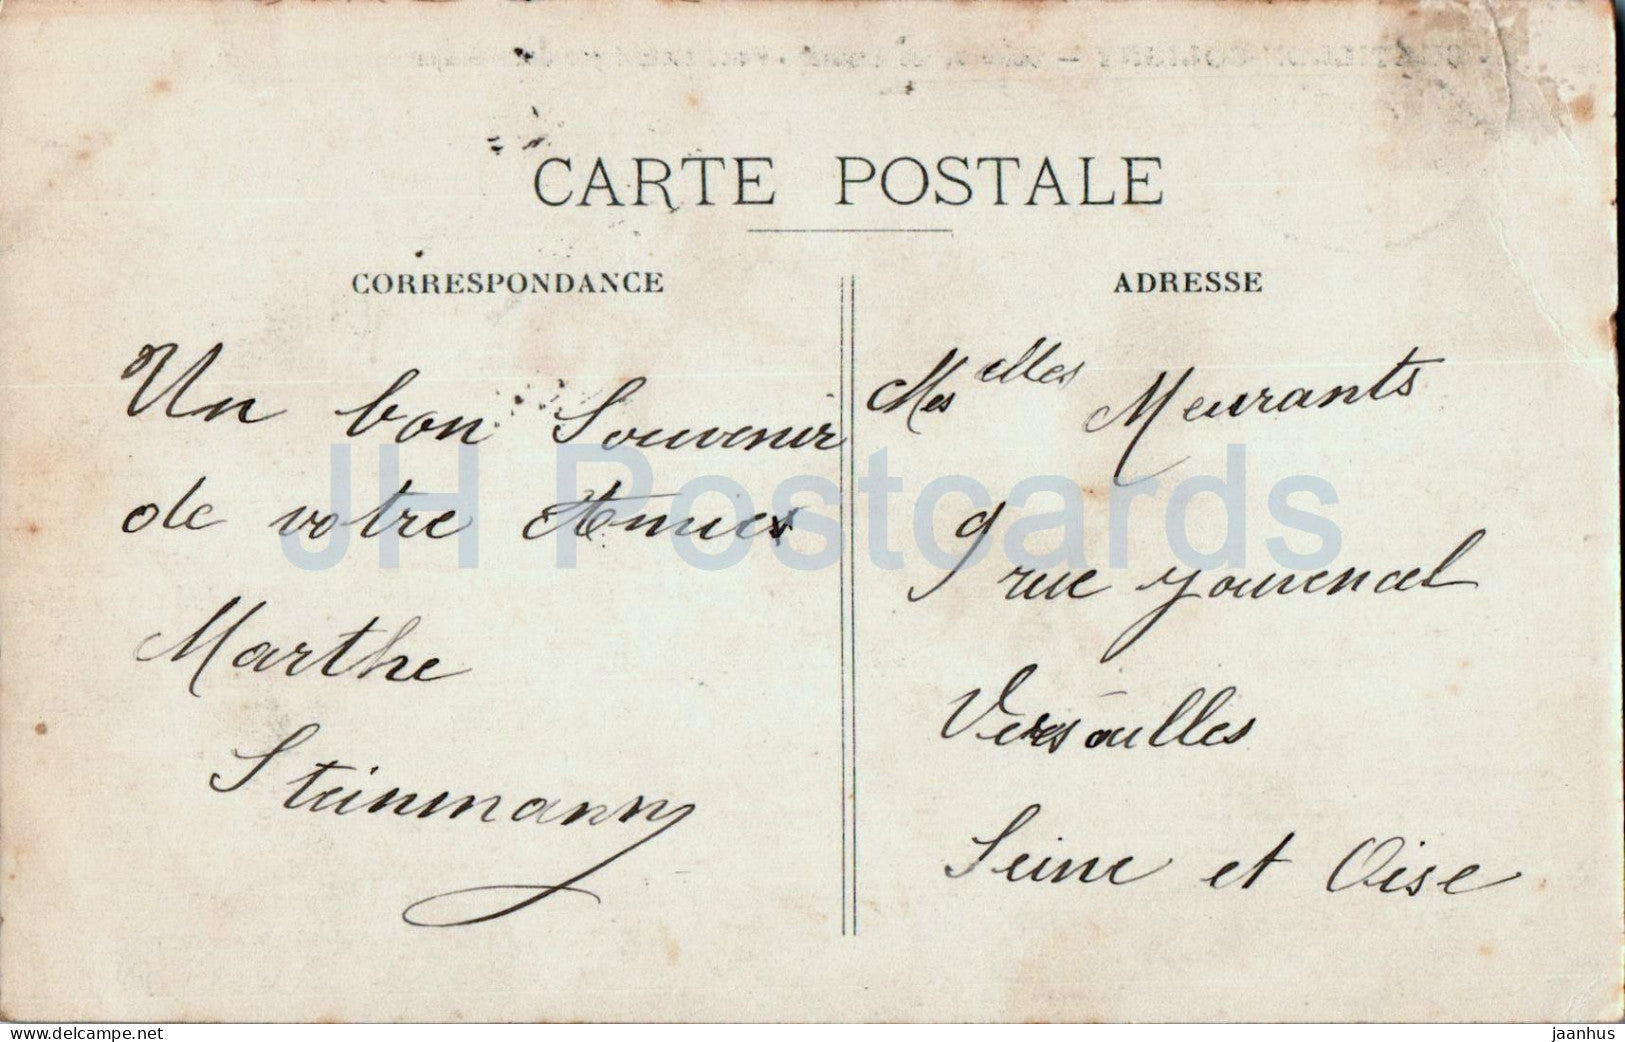 CARTE POSTALE
CORRESPONDANCE
Un bon Souvenir
de votre Amies
Marthe
Steinmann
ADRESSE
Mes elles Meurants
9 rue Jouvencel
Versailles
Seine et Oise
JH Postcards
www.delcampe.net
jaanhus